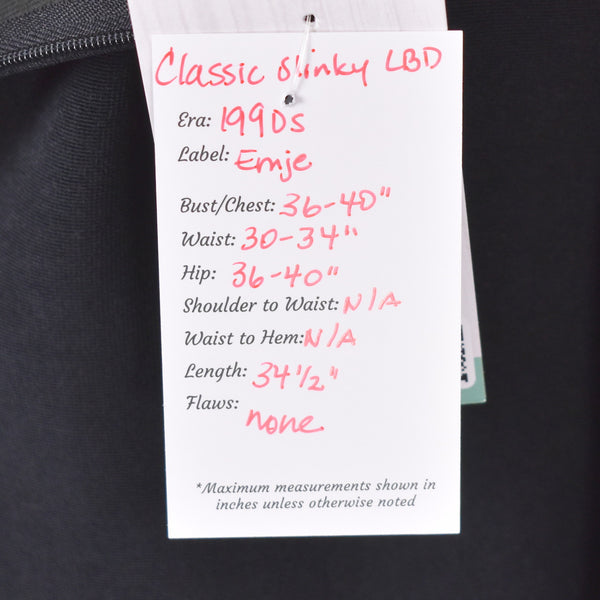 Classic Slinky LBD
Era: 1990s
Label: Emje
Bust/Chest: 36-40"
Waist: 30-34"
Hip: 36-40"
Shoulder to Waist: N/A
Waist to Hem: N/A
Length: 34 1/2"
Flaws: none
*Maximum measurements shown in
inches unless otherwise noted